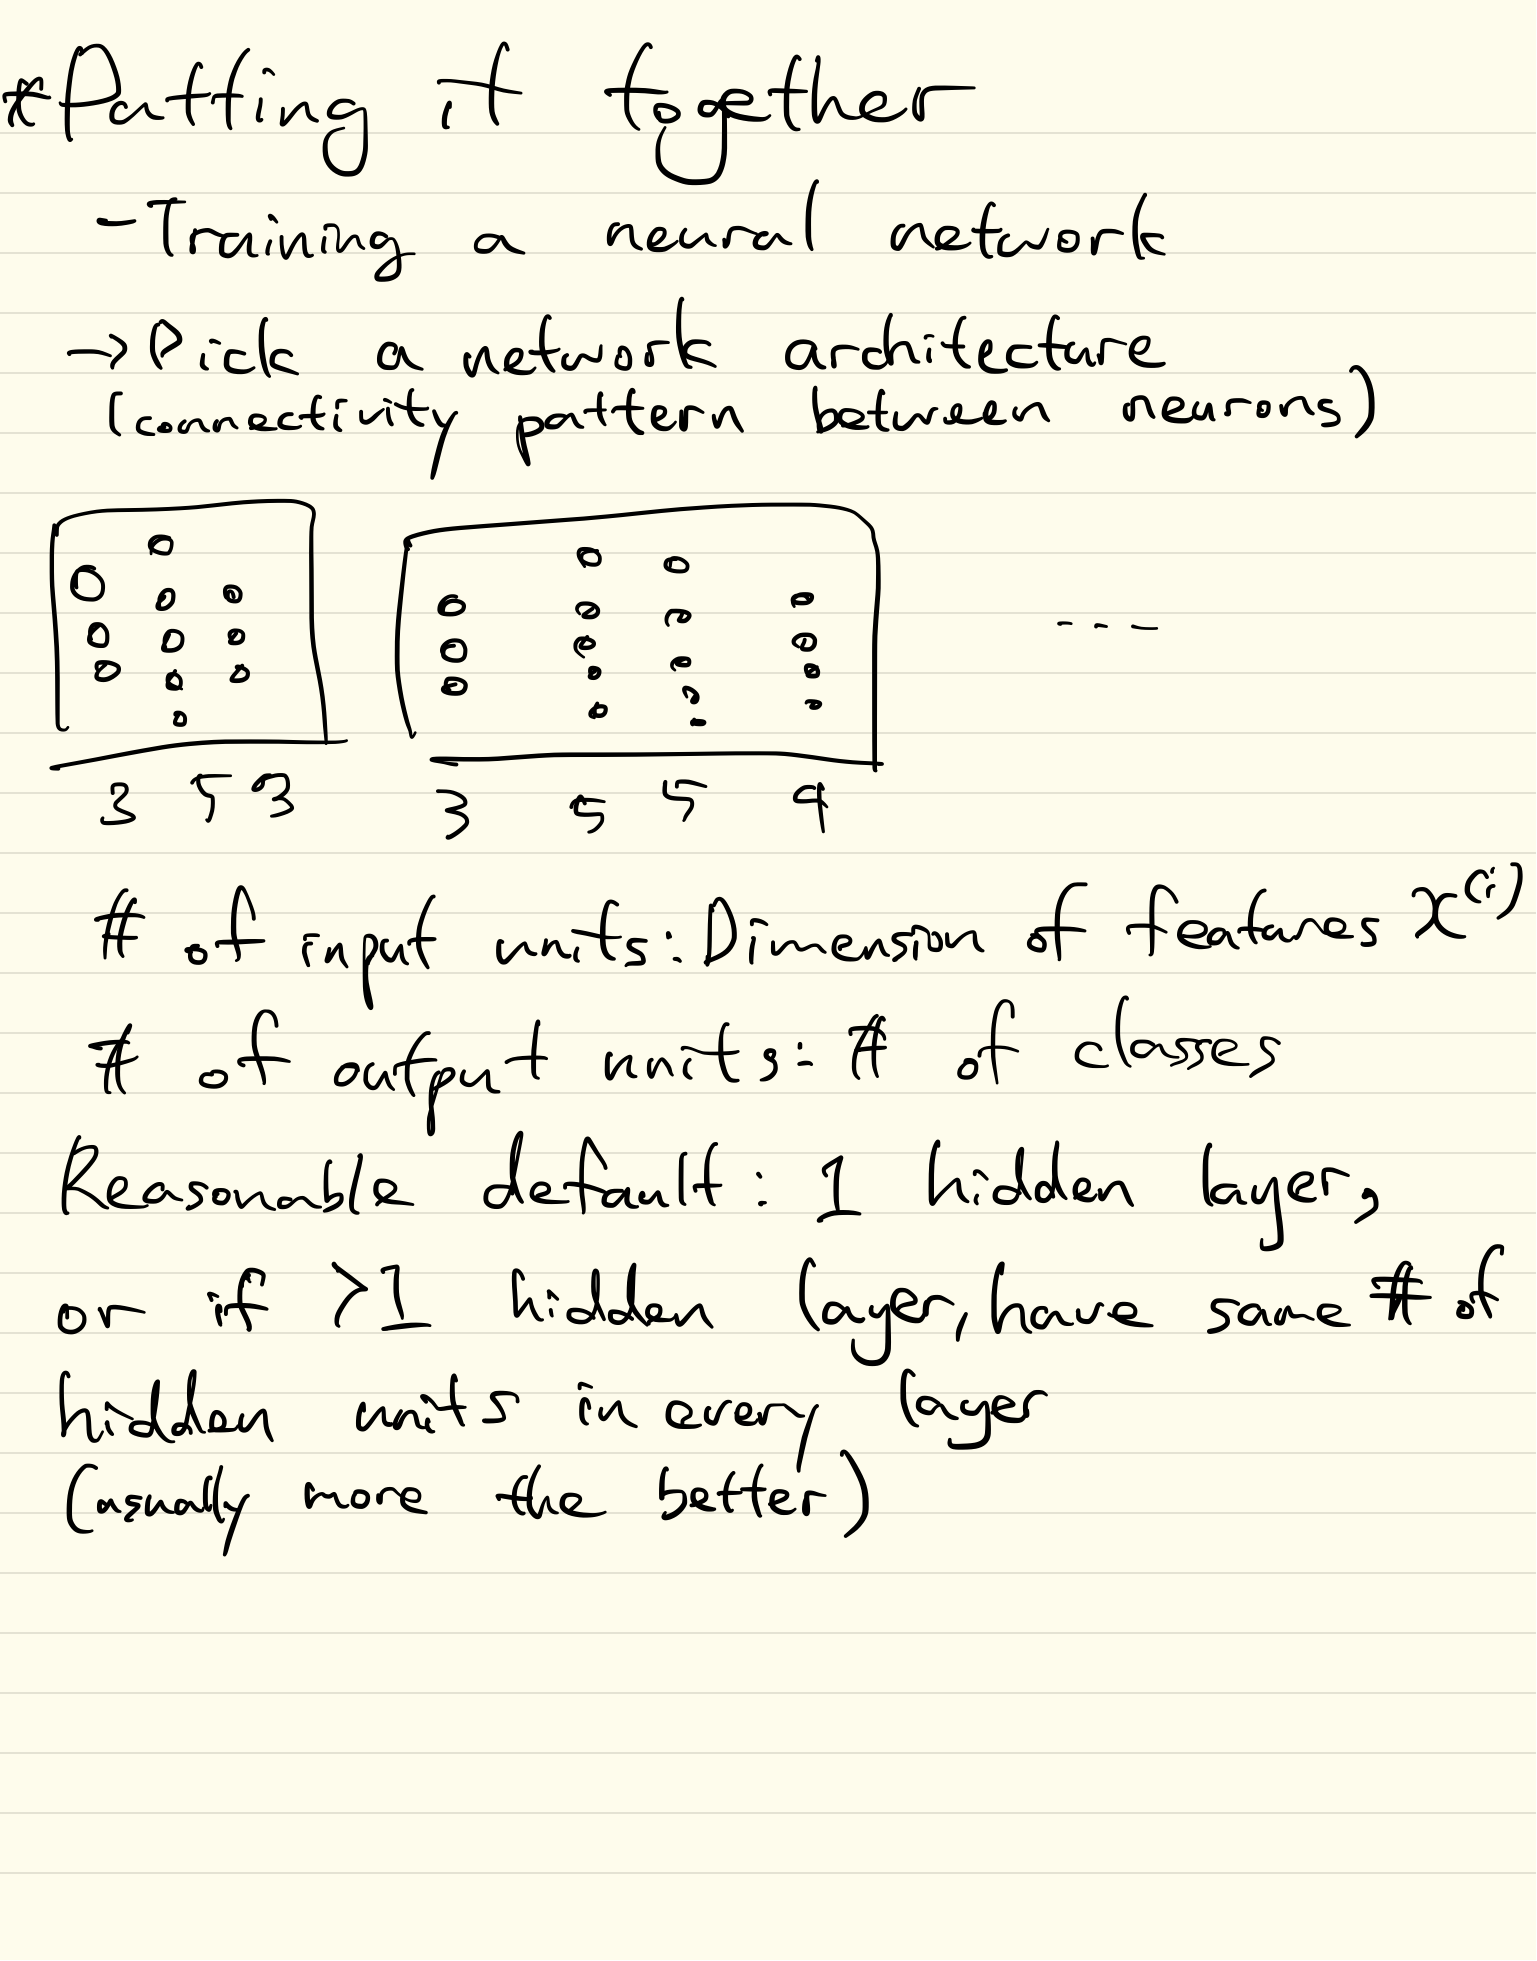 *Putting it together
-Training a neural network
→Pick a network architecture
(connectivity pattern between neurons)
3 5 3 3 5 5 4
# of input units: Dimension of features x^(i)
# of output units: # of classes
Reasonable default: 1 hidden layer,
or if >1 hidden layer, have same # of
hidden units in every layer
(usually more the better)